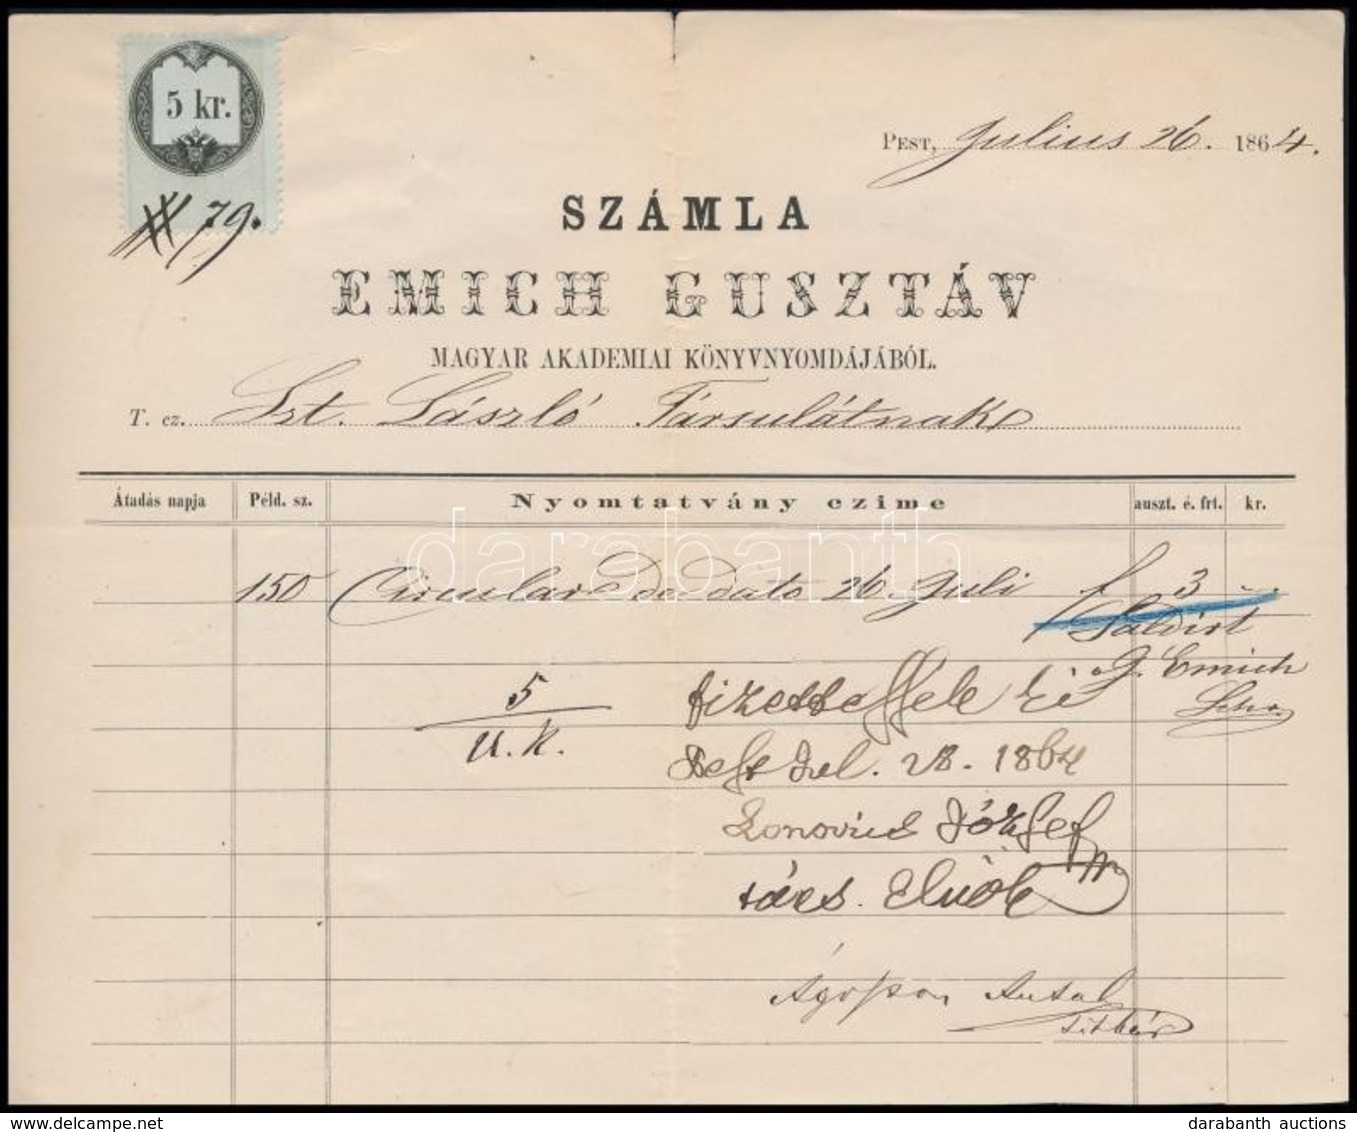 5 kr.
79.
PEST, Julius 26. 1864.
SZÁMLA
EMICH GUSZTÁV
MAGYAR AKADEMIAI KÖNYVNYOMDÁJÁBÓL.
T. cz. Szt. László Társulátnak
Átadás napja Péld. sz. Nyomtatvány czime auszt. é. frt. kr.
150 Circulare de dato 26. Juli f 3 –.
Saldirt
G. Emich
5
u. k.
Pest Jul. 28. 1864
Lonovics József
társ. Elnök
Ágoston Antal
titkár
darabanth
darabanth auctions
www.delcampe.net